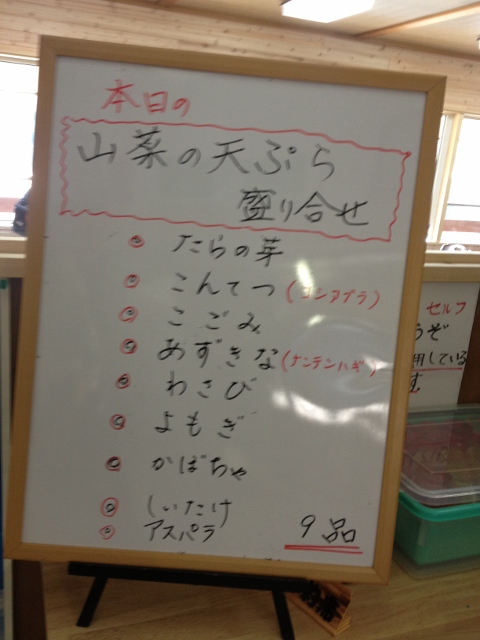 本日の
山菜の天ぷら
盛り合せ
◎ たらの芽
◎ こんてつ(コシアブラ)
◎ こごみ
◎ あずきな(ナンテンハギ)
◎ わさび
◎ よもぎ
◎ かぼちゃ
◎ しいたけ
◎ アスパラ
9品
セルフ
うぞ
用している
す